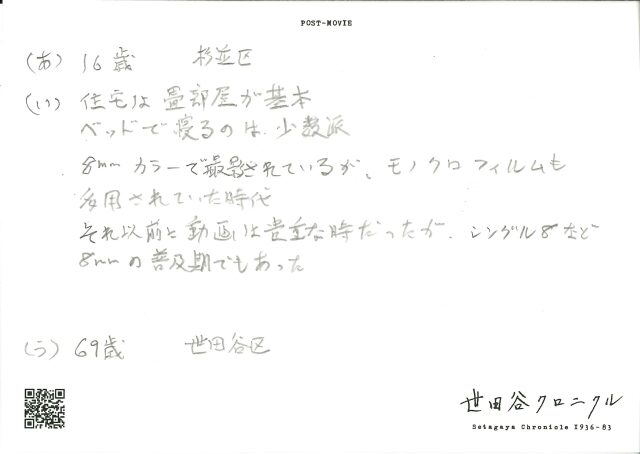 POST-MOVIE
(あ) 16歳 杉並区
(い) 住宅は畳部屋が基本
ベッドで寝るのは少数派
8mmカラーで撮影されているが、モノクロフィルムも
多用されていた時代
それ以前と動画は貴重な時だったが、シングル8など
8mmの普及期でもあった
(う) 69歳 世田谷区
世田谷クロニクル
Setagaya Chronicle 1936-83